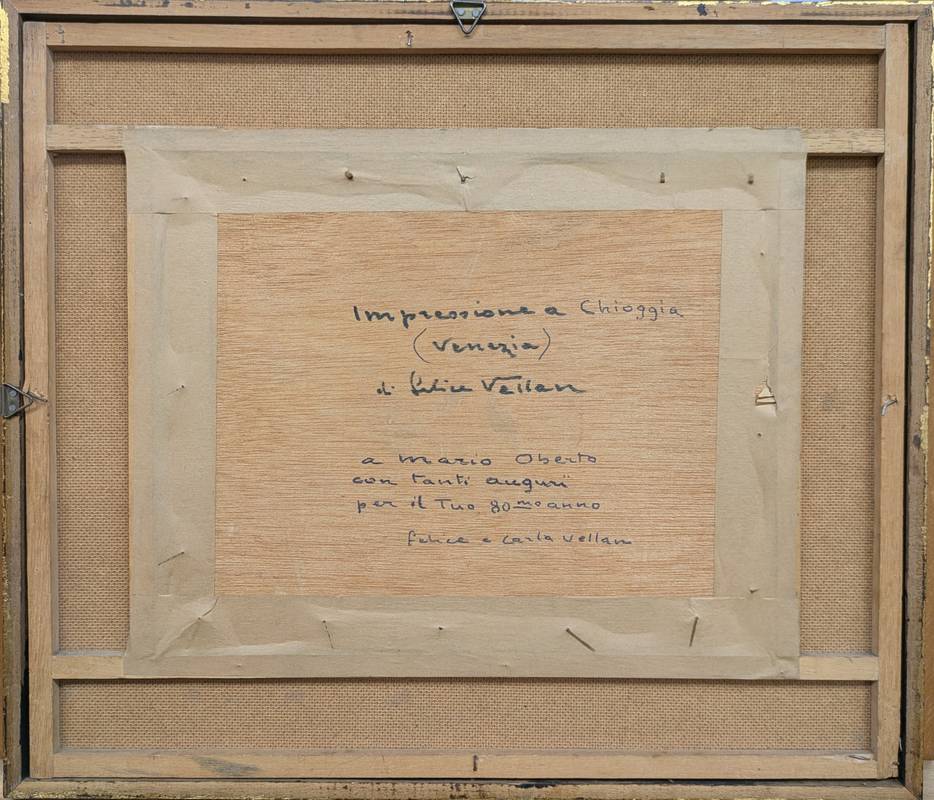 Impressione a Chioggia
(Venezia)
di Felice Vellan
a Mario Oberto
con tanti auguri
per il Tuo 80mo anno
felice e Carla Vellan